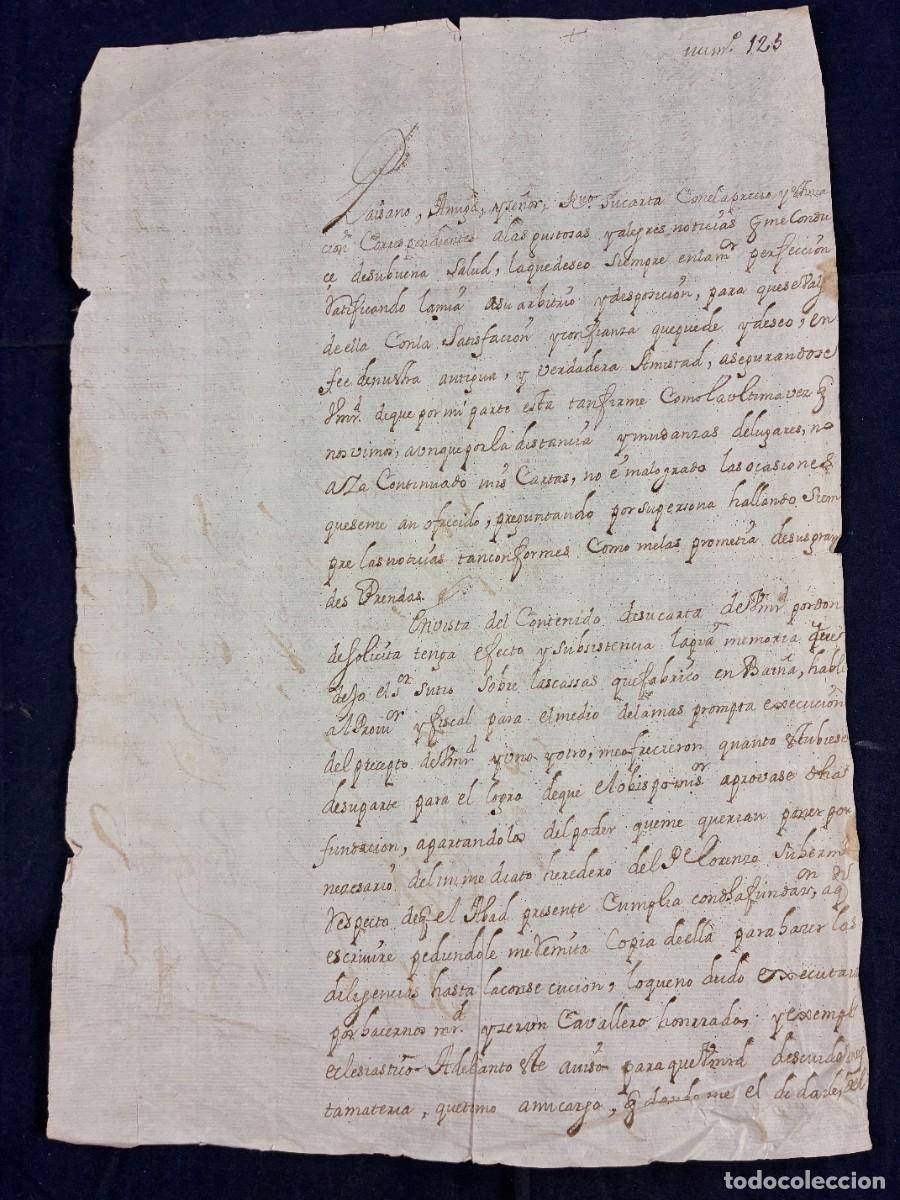 +
num.º 123
Paisano, Amigo, y señor, Rvo. su carta Con el aprecio, y estima
con Correspondiente a las gustosas y alegres noticias q me Condu
ce de su buena Salud, la que deseo siempre en la mr perfeccion
Ratificando la mia a su arbitrio y disposicion, para que se valga
de ella Con la Satisfacion y confianza que puede y deseo, en
fee de nustra antigua, y verdadera Amistad, asegurandose
Vmrd. de que por mi parte esta tan firme Como la ultima vez q
nos vimos, aunque por la distancia y mudanzas de lugares, no
aya Continuado mis Cartas, no e malogrado las ocasiones
que se me an ofrecido, preguntando por su persona hallando Siem
pre las noticias tan conformes Como me las prometia de sus gran
des Prendas.
En vista del Contenido de su carta de Vmrd por don
de solicita tenga efecto y subsistencia la memoria que
dejo el Sr. su tio sobre las cassas que fabrico en Baina, hable
al Provisor y fiscal para el medio de la mas prompta execucion
del precepto de Vmrd y uno y otro, me ofrecieron quanto estubiese
de su parte para el logro de que el obispo mi sr aprovase dha
fundacion, apartandola del poder que me querian poner por
necesario del immediato heredero del Pe Lorenzo su herm
Respecto de q el Abad presente Cumplia con dha fundacn, a
escrivire pidiendole me Remita Copia de ella para hazer las
diligencias hasta la consecucion, lo que no dudo executara
por hacernos mrd. y ser un Cavallero honrrado, y exempl
eclesiastico Adelanto este aviso para que Vmrd descuide
ta materia, que tomo a mi cargo, q dando me el de darle
todocoleccion